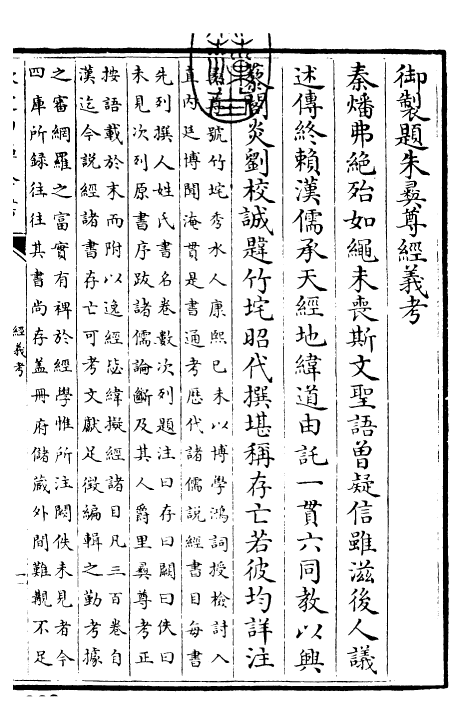 御製題朱彝尊經義考
秦燔弗絶殆如繩未喪斯文聖語曾疑信雖滋後人議
述傳終賴漢儒承天經地緯道由託一貫六同教以興
藜閣炎劉校誠韙竹垞昭代撰堪稱存亡若彼均詳注
彝尊號竹垞秀水人康熙己未以博學鴻詞授檢討入
直内廷博聞淹貫是書通考歷代諸儒説經書目每書
先列撰人姓氏書名卷數次列題注曰存曰闕曰佚曰
未見次列原書序跋諸儒論斷及其人爵里彝尊考正
按語載於末而附以逸經毖緯擬經諸目凡三百卷自
漢迄今説經諸書存亡可考文獻足徵編輯之勤考據
之審網羅之富實有裨於經學惟所注闕佚未見者今
四庫所録往往其書尚存盖冊府儲藏外間難覯不足
經義考
一